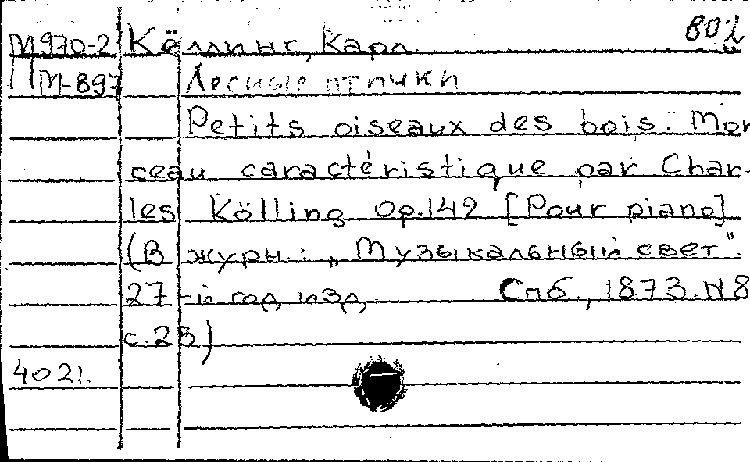 80%
М970-2 Кёллинг, Карл.
М-897 Лесные птички
Petits oiseaux des bois. Mor-
ceau caractéristique par Char-
les Kölling Op. 142 [Pour piano]
(В журн.: „Музыкальный свет".
27-й год изд. Спб., 1873. N8
с. 25)
4021.